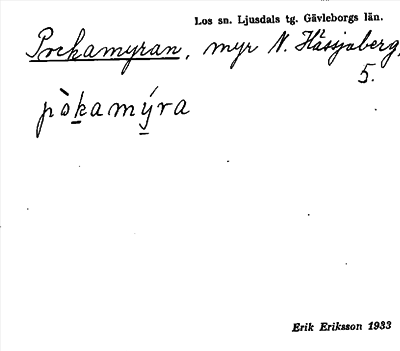 Los sn. Ljusdals tg. Gävleborgs län.
Pockamyran, myr N. Hässjaberg,
5.
pòkamýra
Erik Eriksson 1933